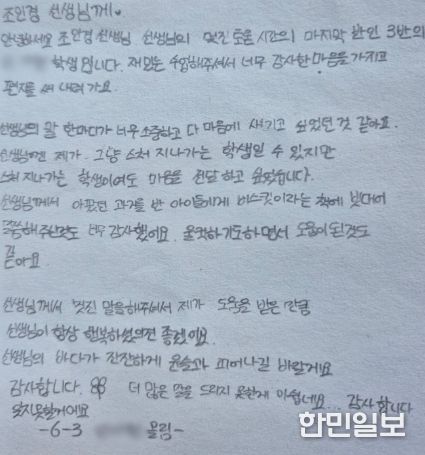 조인경 선생님께♥
안녕하세요 조인경 선생님 선생님의 멋진 도움 시간의 마지막 반인 3반의
학생 입니다. 재밌는 수업해주셔서 너무 감사한 마음을 가지고
편지를 써 내려 가요.
선생님의 말 한마디가 너무 소중하고 다 마음에 새기고 싶었던 것 같아요.
선생님에겐 제가 그냥 스쳐 지나가는 학생일 수 있지만
스쳐 지나가는 학생이여도 마음을 전달 하고 싶었습니다.
선생님께서 아팠던 과거를 반 아이들에게 비스킷이라는 책에 빗대어
말씀해주신것도 너무 감사했어요. 울컥하기도하면서 도움이된것도
같아요
선생님께서 멋진 말을해주셔서 제가 도움을 받은 만큼
선생님이 항상 행복하셨으면 좋겠어요.
선생님의 바다가 잔잔하게 윤슬과 피어나길 바랄게요
감사합니다. 더 많은 말을 드리지 못한게 아쉽네요.. 감사합니다
잊지못할거에요
-6-3 올림-
한민일보